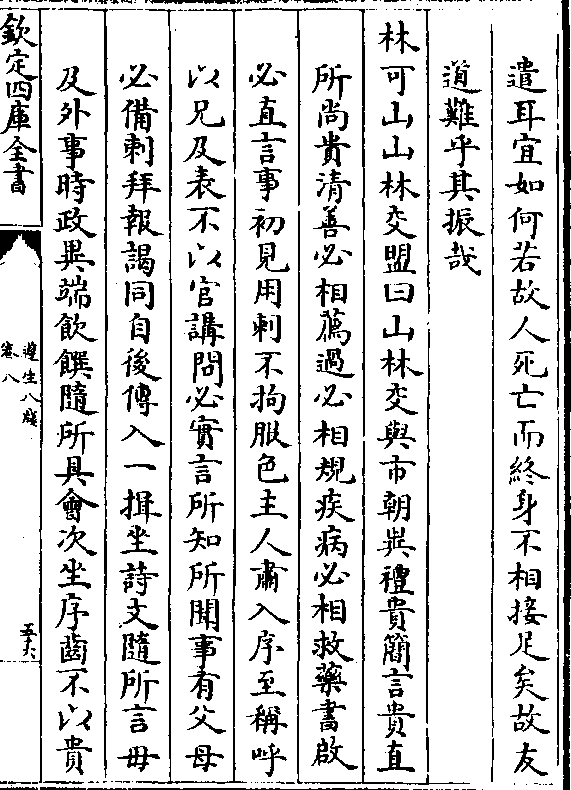 遣耳宜如何若故人死亡而終身不相接足矣故友
道難乎其振哉
林可山山林交盟曰山林交與市朝異禮貴簡言貴直
所尚貴清善必相薦過必相規疾病必相救藥書啟
必直言事初見用刺不拘服色主人肅入序至稱呼
以兄及表不以官講問必實言所知所聞事有父母
必備刺拜報謁同自後傳入一揖坐詩文隨所言毋
及外事時政異端飲饌隨所具會次坐序齒不以貴
欽定四庫全書
遵生八牋
卷八
五六